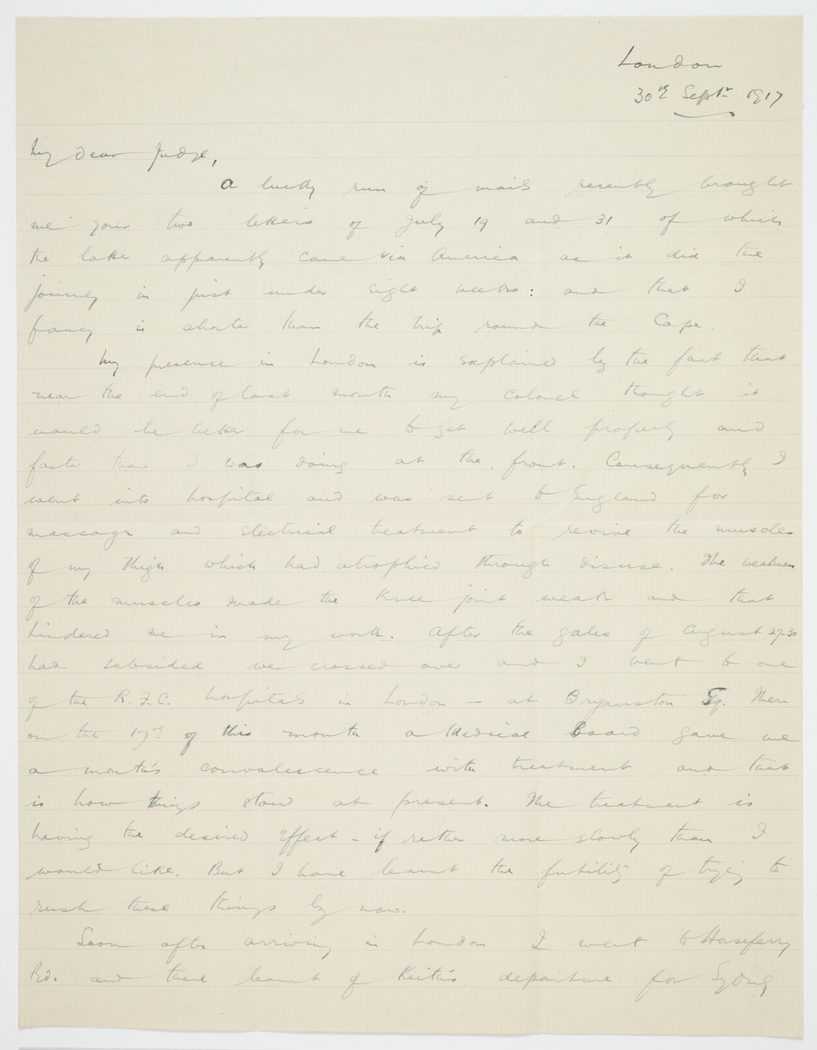 London
30th Septr 1917
My dear Judge,
A lucky run of mails recently brought
me your two letters of July 19 and 31 of which
the latter apparently came via America as it did the
journey in just under eight weeks: and that I
fancy is shorter than the trip round the Cape.
My presence in London is explained by the fact that
near the end of last month my colonel thought it
would be better for me to get well properly and
faster than I was doing at the front. Consequently I
went into hospital and was sent to England for
massage and electrical treatment to revive the muscles
of my thigh which had atrophied through disuse. The weakness
of the muscles made the knee joint weak and that
hindered me in my work. After the gales of August 29-30
had subsided we crossed over and I went to one
of the R.F.C. hospitals in London – at Bryanston Sq. Then
on the 19th of this month a Medical Board gave me
a month's convalescence with treatment and that
is how things stand at present. The treatment is
having the desired effect – if rather more slowly than I
would like. But I have learnt the futility of trying to
rush these things by now.
Soon after arriving in London I went to Horseferry
Rd. and there learnt of Keith's departure for Sydney